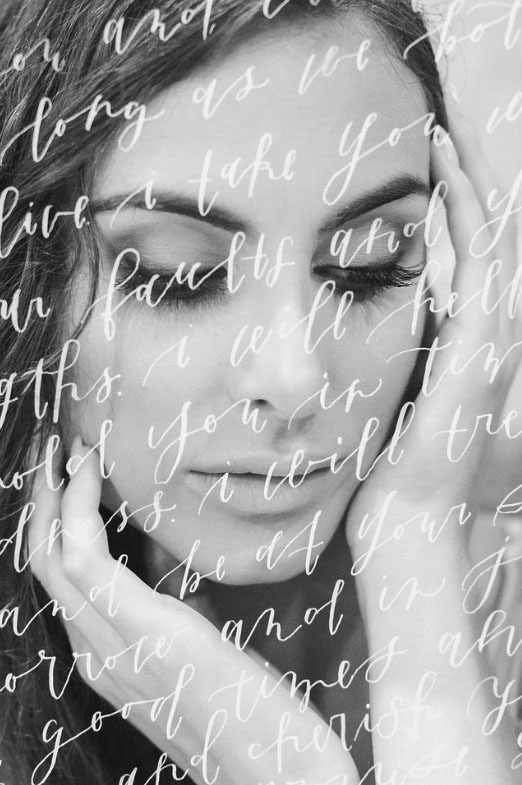 or and
long as we bot
live. i take you w
ur faults and y
gths. i will hel
hold you in tim
dness. i will tre
and be at your
orrow and in j
good times an
and cherish y